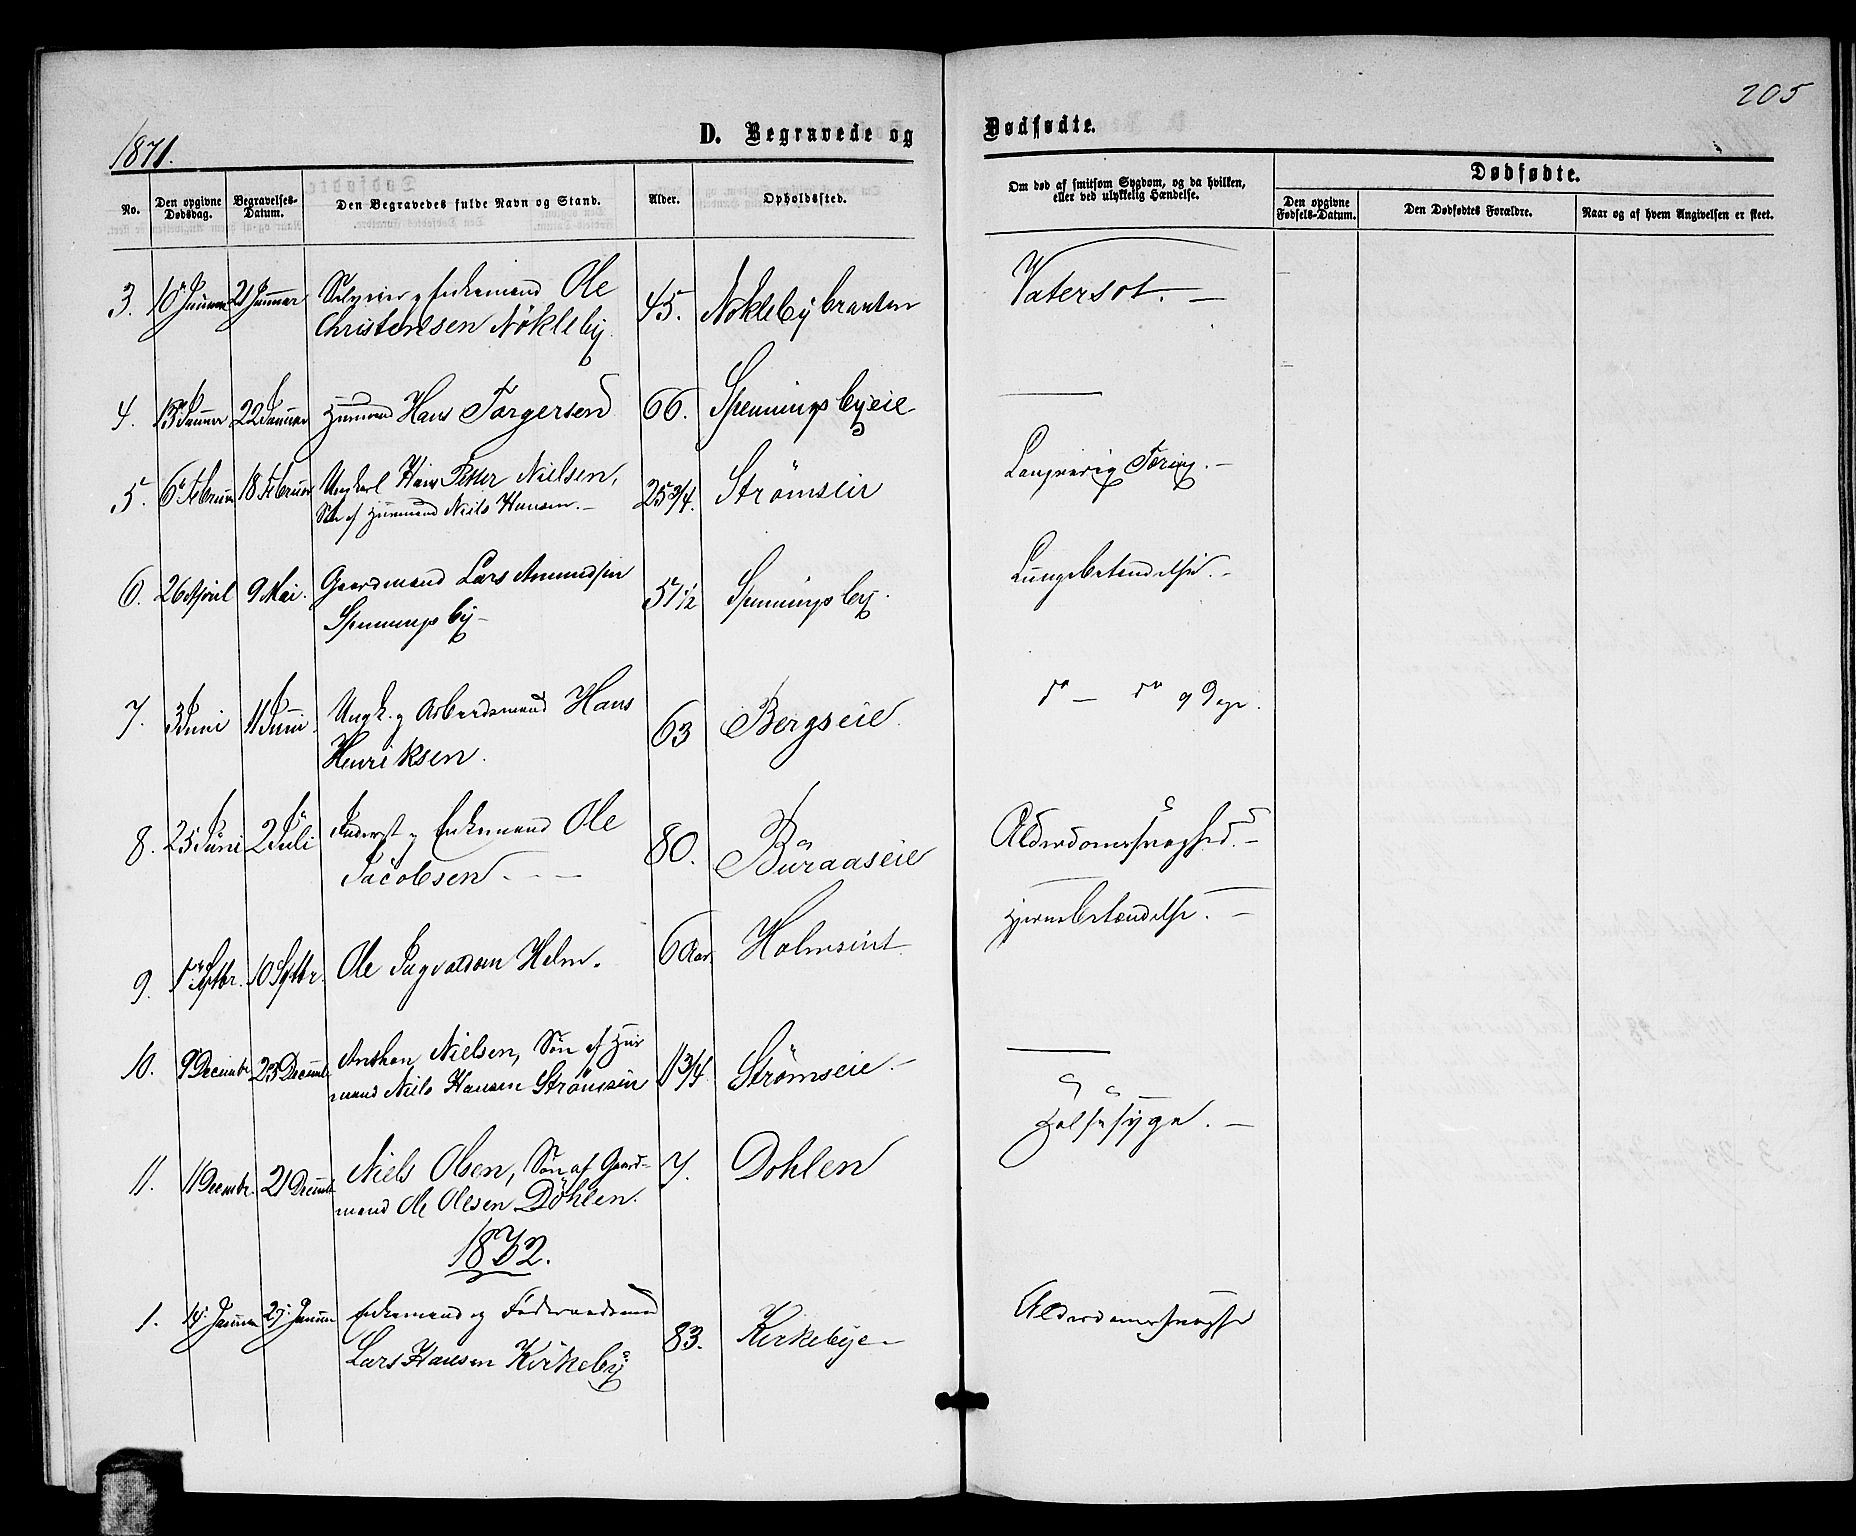 205
1871.
D. Begravede og Dødfødte.
No. Den opgivne Dødsdag. Begravelses-Datum. Den Begravedes fulde Navn og Stand. Alder. Opholdssted. Om død af smitsom Sygdom, og da hvilken, eller ved ulykkelig Hændelse. Dødfødte.
Den opgivne Fødsels-Datum. Den Dødfødtes Forældre. Naar og af hvem Angivelsen er skeet.
3. 10 Januar 21 Januar Selveier og Enkemand Ole 45. Nøklebybraaten Vatersot. —
Christensen Nökleby.
4. 13 Januar 22 Januar Huusmand Hans Torgersen 66. Spenningsbyeie —
5. 6 Februar 18 Februar Ungkarl Hans Peter Nielsen, 25 3/4. Strömseie Langvarig Tæring. —
Søn af Huusmand Niels Hansen. —
6. 26 April 9 Mai. Gaardmand Lars Amundsen 57 1/2 Spenningsby. Lungebetændelse. —
Spenningsby —
7. 3 Juni 11 Juni. Ungk. og Arbeidsmand Hans 63 Bergseie. do — do 9 Dage.
Henriksen.
8. 25 Juni 2 Juli Inderst og Enkemand Ole 80. Büraaseie Alderdomssvaghed. —
Jacobsen —
9. 1 Septbr. 10 Septbr. Ole Ingvaldsen Holm. 6 Aar Hjernebetændelse. —
10. 9 Decembr 23 Decembr Anthon Nielsen, Søn af Huus 11 3/4 Strömseie. — —
mand Niels Hansen Strömseie
11. 11 Decembr. 21 Decembr Niels Olsen, Søn af Gaard- 7. Dohlen Halssyge. —
mand Ole Olesen Döhlen.
1872.
1. 14 Januar 27 Januar Enkemand og Føderaadsmand 83. Kirkebye — Alderdomssvaghed
Lars Hansen Kirkeby